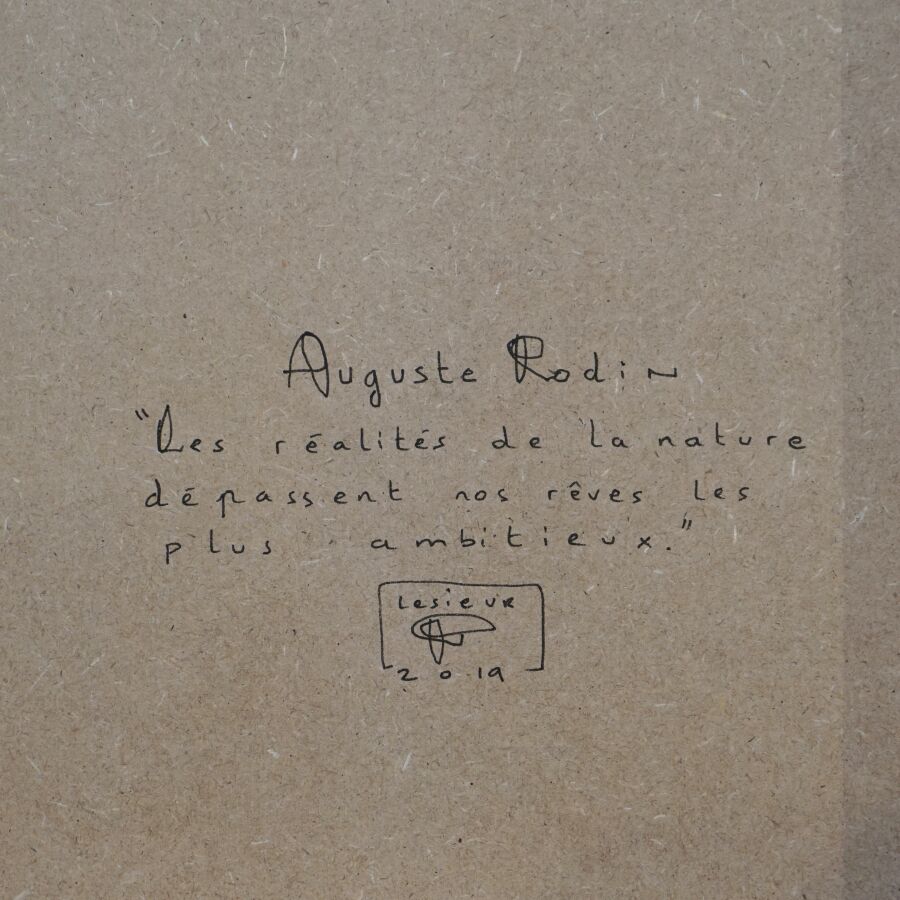 Auguste Rodin
"Les réalités de la nature
dépassent nos rêves les
plus ambitieux."
Lesieur
2019